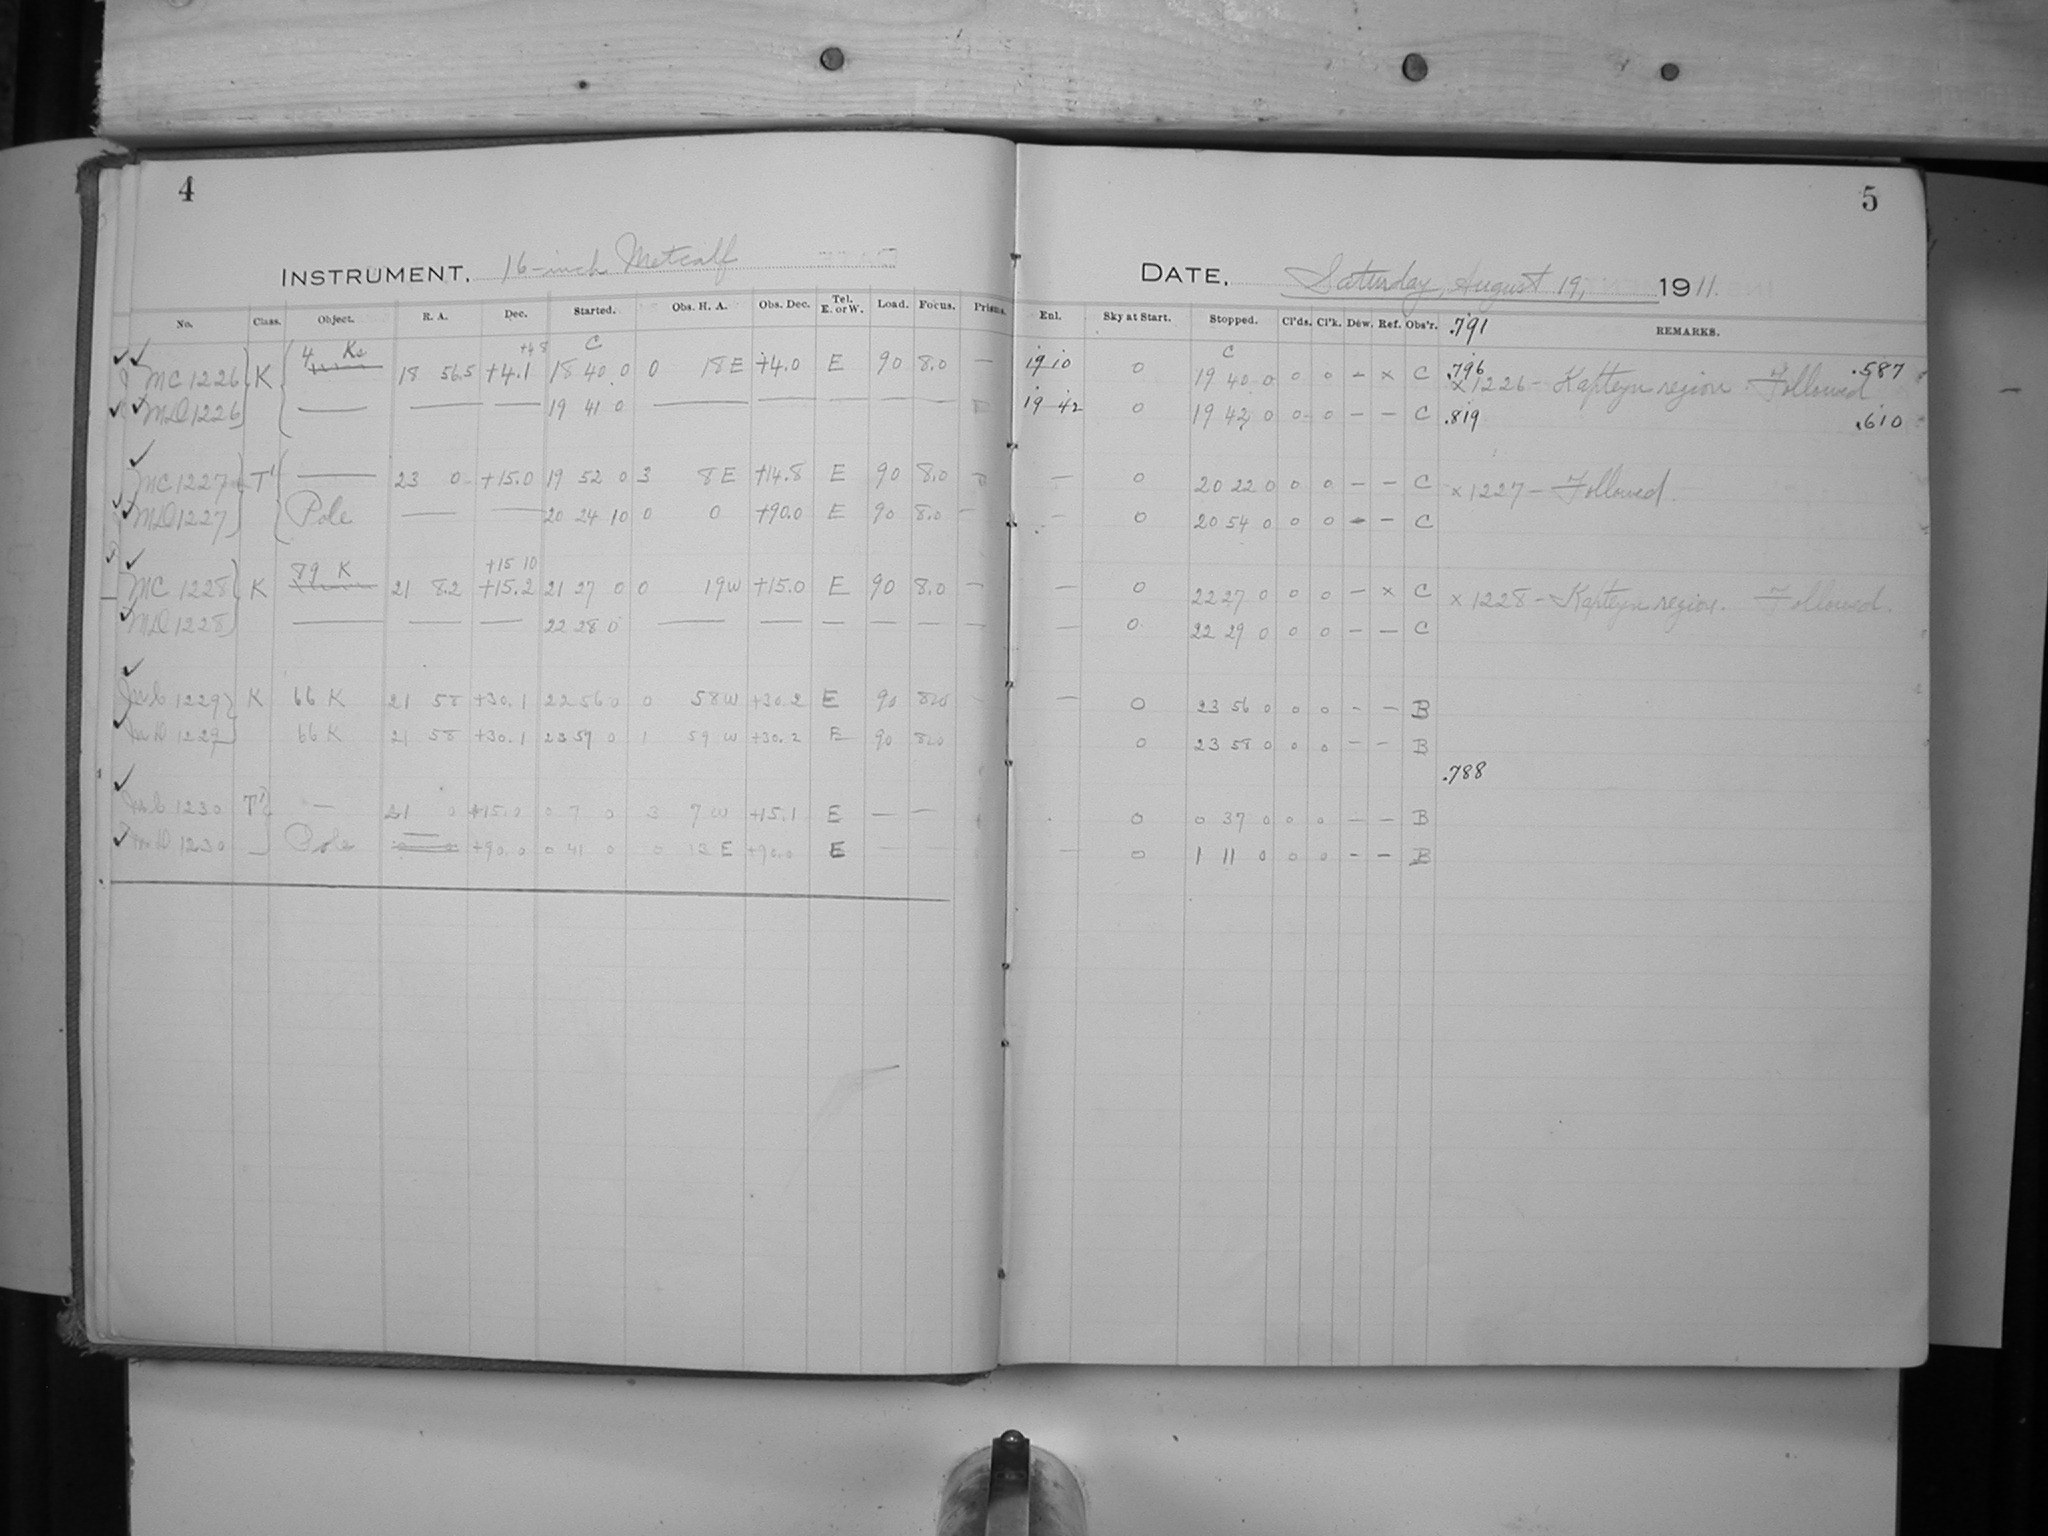 4
INSTRUMENT, 16-inch Metcalf
No. Class. Object. R. A. Dec. Started. Obs. H. A. Obs. Dec. Tel. E. or W. Load. Focus. Prisms.
MC 1226 K 4 K 18 56.5 +4.1 18 40 0 0 18 E +4.0 E 90 8.0 —
MD 1226 — — — 19 41 0 — — — — —
MC 1227 T' — 23 0 +15.0 19 52 0 3 8 E +14.8 E 90 8.0
MD 1227 Pole — — 20 24 10 0 0 +90.0 E 90 8.0 —
+15 10
MC 1228 K 89 K 21 8.2 +15.2 21 27 0 0 19 W +15.0 E 90 8.0 —
MD 1228 — — — 22 28 0 — — — — — —
MC 1229 K 66 K 21 58 +30.1 22 56 0 0 58 W +30.2 E 90 8.0
MD 1229 66 K 21 58 +30.1 23 57 0 1 59 W +30.2 E 90 8.0
MC 1230 T' — 21 0 +15.0 0 7 0 3 7 W +15.1 E — —
MD 1230 Pole +90.0 0 41 0 0 13 E +90.0 E — —
5
DATE, Saturday, August 19, 1911.
Enl. Sky at Start. Stopped. Cl'ds. Cl'k. Dew. Ref. Obs'r. .791 REMARKS.
C
.796 .587
19 10 0 19 40 0 0 0 – x C x 1226 – Kapteyn region. Followed
19 42 0 19 42 0 0 0 – – C .819 .610
— 0 20 22 0 0 0 – – C x 1227 – Followed.
— 0 20 54 0 0 0 – – C
— 0 22 27 0 0 0 – x C x 1228 – Kapteyn region. Followed.
— 0 22 29 0 0 0 – – C
— 0 23 56 0 0 0 – – B
0 23 58 0 0 0 – – B
.788
0 0 37 0 0 0 – – B
— 0 1 11 0 0 0 – – B